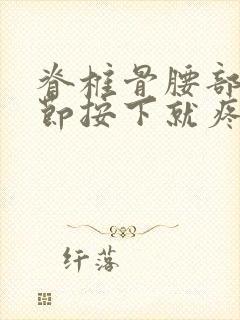 脊椎骨腰部
节按下就疼
纤落